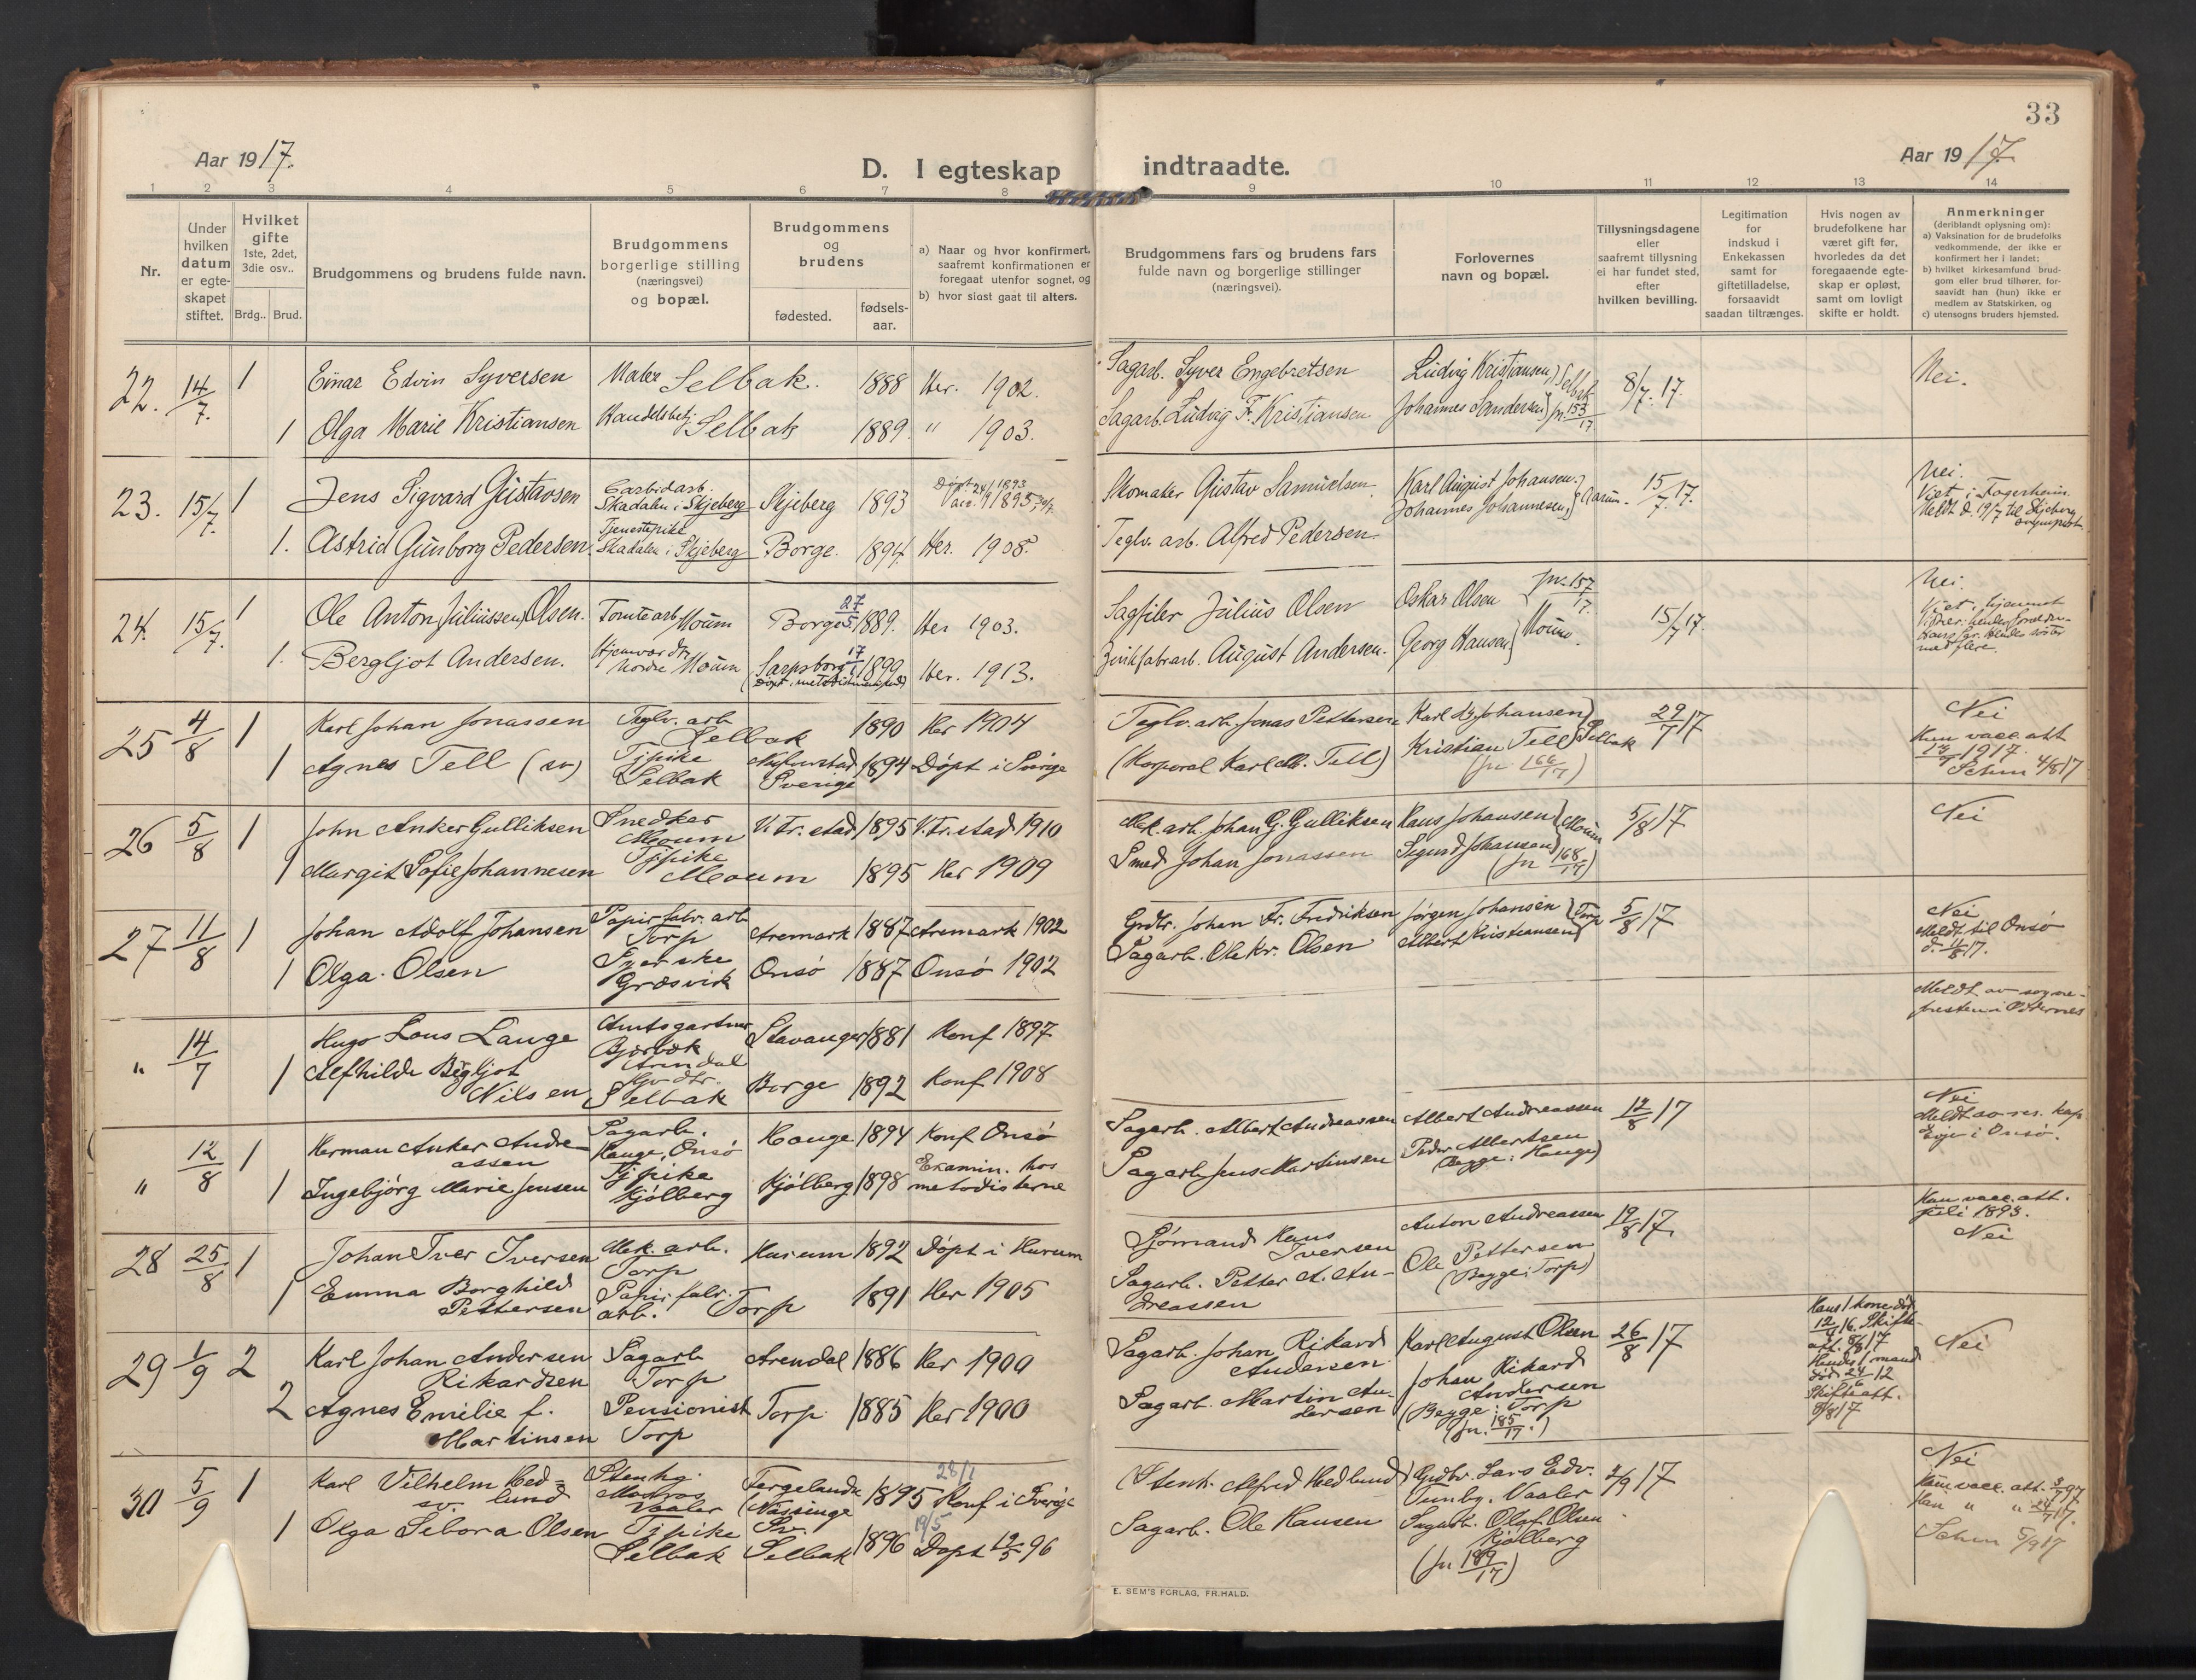 33
Aar 1917.
D. I egteskap indtraadte.
Aar 1917
1 2 3 4 5 6 7 8 9 10 11 12 13 14
Nr.
Under hvilken datum er egteskapet stiftet.
Hvilket gifte 1ste, 2det, 3die osv..
Brdg.. Brud.
Brudgommens og brudens fulde navn.
Brudgommens borgerlige stilling (næringsvei) og bopæl.
Brudgommens og brudens
fødested.
fødsels-aar.
a) Naar og hvor konfirmert, saafremt konfirmationen er foregaat utenfor sognet, og
b) hvor sidst gaat til alters.
Brudgommens fars og brudens fars fulde navn og borgerlige stillinger (næringsvei).
Forlovernes navn og bopæl.
Tillysningsdagene eller saafremt tillysning ei har fundet sted, efter hvilken bevilling.
Legitimation for indskud i Enkekassen samt for giftetilladelse, forsaavidt saadan tiltrænges.
Hvis nogen av brudefolkene har været gift før, hvorledes da det foregaaende egteskap er opløst, samt om lovligt skifte er holdt.
Anmerkninger (deriblandt oplysning om):
a) Vaksination for de brudefolks vedkommende, der ikke er konfirmert her i landet;
b) hvilket kirkesamfund brudgom eller brud tilhører, forsaavidt han (hun) ikke er medlem av Statskirken, og
c) utensogns bruders hjemsted.
22. 14/7. 1 Einar Edvin Syversen Maler Selbak. 1888 Her. 1902. Sagarb. Syver Engebretsen Ludvig Kristiansen } Selbak 8/7. 17. Nei.
1 Olga Marie Kristiansen Handelsbetj. Selbak 1889. " 1903. Sagarb. Ludvig F. Kristiansen Johannes Sandersen jn. 153/17
23. 15/7. 1 Jens Sigvard Gustavsen Carbidarb. Skadalen i Skjeberg Skjeberg 1893 Skomaker Gustav Samuelsen. Karl August Johansen. 15/7. 17. Nei. Viet i Fagerheim. Meldt d. 19/7 til Skjeberg
1. Astrid Gunborg Pedersen Tjenestepike Skadalen i Skjeberg Borge. 1894. Her. 1908. Teglv. arb. Alfred Pedersen. Johannes Johannesen,
24. 15/7. 1 Ole Anton Juliussen, Olsen. Tomtearb. Moum Borge 27/5 1889. Her 1903. Sagfiler Julius Olsen Oskar Olsen jn. 157/17. Moum. 15/7 17. Nei.
1. Bergljot Andersen. Hjemv. dtr. Nordre Moum Sarpsborg 17/1 1899 Her. 1913. Zinkfabrarb. August Andersen. Georg Hansen
25 4/8 1 Karl Johan Jonassen Teglv. arb Selbak 1890 Her 1904 Teglv. arb. Jonas Pettersen Karl Johansen } Selbak 29/7 17 Nei
1 Agnes Tell (sv) Tjpike Selbak Sverige 1894 Døpt i Sverige (Korporal Karl M. Tell) Kristian Tell (jn 166/17) Hun vacc. att 1917. 4/8 17
26 5/8 1 John Anker Gulliksen Snedker Moum V. Fr. stad 1895 V. Fr. stad 1910 Mek. arb. Johan G. Gulliksen Hans Johansen } Moum 5/8 17 Nei
1 Margit Sofie Johannesen Tjpike Moum 1895 Her 1909 Smed Johan Jonassen Sigurd Johansen (jn 168/17)
27 11/8 1 Johan Adolf Johansen Papirfabr. arb Torp Aremark 1887 Aremark 1902 Grdbr. Johan Fr. Fredriksen Jørgen Johansen } Torp 5/8 17 Nei Meldt til Onsø d. 11/8 17.
1 Olga Olsen Syerske Græsvik Onsø 1887 Onsø 1902 Sagarb. Ole Kr. Olsen Albert Kristiansen
" 14/7 Hugo Lous Lange Amtsgartner Bjorbæk Arendal Stavanger 1881 Konf 1897 Meldt av sogne-
1 Alfhilde Bergljot Nilsen Hjv. dtr. Selbak Borge 1892 Konf 1908
" 12/8 1 Herman Anker Andreassen Sagarb. Hauge, Onsø Hauge 1894 Konf Onsø Sagarb. Albert Andreassen Albert Andreassen 12/8 17 Nei Meldt av res. kap. Evje i Onsø.
1 Ingebjörg Marie Jensen Tjpike Kjølberg Kjølberg 1898 Examin. hos metodisterne Sagarb Jens Martinsen Peder Albertsen (Begge: Hauge)
28 25/8 1 Johan Iver Iversen Mek. arb. Torp Hurum 1892 Døpt i Hurum Sjømand Hans Iversen Anton Andreassen 19/8 17. Han vacc. att. juli 1893. Nei
1 Emma Borghild Pettersen Papirfabr. arb. Torp 1891 Her 1905 Sagarb. Petter A. Andreassen Ole Pettersen (Begge: Torp)
29 1/9 2 Karl Johan Andersen Rikardsen Sagarb Torp Arendal 1886 Her 1900 Sagarb. Johan Rikard Andersen Karl August Olsen 26/8 17 Hans 1 kone død 12/4 16. Skifte att. 8/8 17 Nei
2 Agnes Emilie f. Martinsen Pensionist Torp Torp 1885 Her 1900 Sagarb. Martin Andersen Johan Rikard Andersen (Begge: Torp (jn. 185/17.) Hendes 1 mand død 24/6 12 Skifteatt. 8/8 17
30 5/9 1 Karl Vilhelm Hedlund sv. Stenhg. Mosseros Vaaler (Næssinge Sv. 1895 28/2 Konf i Sverige (Stenh. Alfred Hedlund) Grdbr. Lars Edv. Tunby. Vaaler 2/9 17 Nei
1 Olga Sebora Olsen Tjpike Selbak Selbak 1896 19/5 Døpt 12/5 96 Sagarb. Ole Hansen Sagarb. Olaf Olsen Kjølberg (jn 189/17) 5/9 17
E. SEM'S FORLAG, FR.HALD.